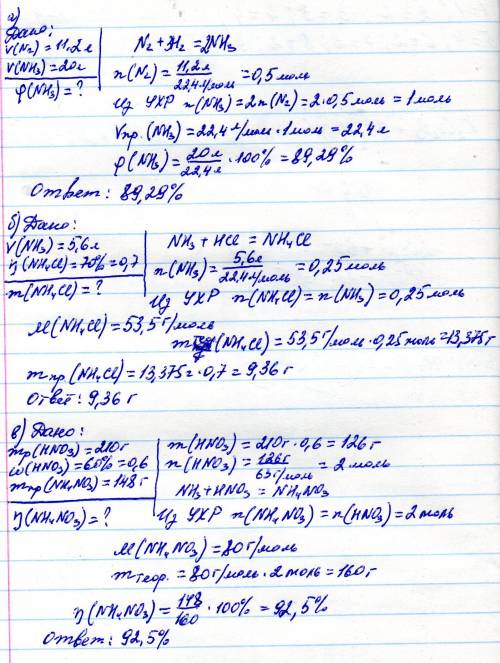 а)
Дано:
V(N₂) = 11.2л
V(NH₃) = 20л
φ(NH₃) = ?
N₂ + 3H₂ = 2NH₃
n(N₂) = 11,2л / 22,4л/моль = 0,5 моль
Из УХР n(NH₃) = 2n(N₂) = 2·0,5 моль = 1 моль
Vпр. (NH₃) = 22,4 л/моль · 1 моль = 22,4 л
φ(NH₃) = 20л / 22,4л · 100% = 89,29%
Ответ: 89,29%
б) Дано:
V(NH₃) = 5,6л
η(NH₄Cl) = 70% = 0,7
m(NH₄Cl) = ?
NH₃ + HCl = NH₄Cl
n(NH₃) = 5,6л / 22,4л/моль = 0,25 моль
Из УХР n(NH₄Cl) = n(NH₃) = 0,25 моль
M(NH₄Cl) = 53,5 г/моль
m (NH₄Cl) = 53,5 г/моль · 0,25 моль = 13,375 г
mпр (NH₄Cl) = 13,375г · 0,7 = 9,36 г
Ответ: 9,36 г
в) Дано:
mр(HNO₃) = 210г
ω(HNO₃) = 60% = 0,6
mпр(NH₄NO₃) = 148 г
η(NH₄NO₃) = ?
m(HNO₃) = 210г · 0,6 = 126г
n(HNO₃) = 126г / 63 г/моль = 2 моль
NH₃ + HNO₃ = NH₄NO₃
Из УХР n(NH₄NO₃) = n(HNO₃) = 2 моль
M(NH₄NO₃) = 80 г/моль
mтеор. = 80 г/моль · 2 моль = 160 г
η(NH₄NO₃) = 148 / 160 · 100% = 92,5%
Ответ: 92,5%